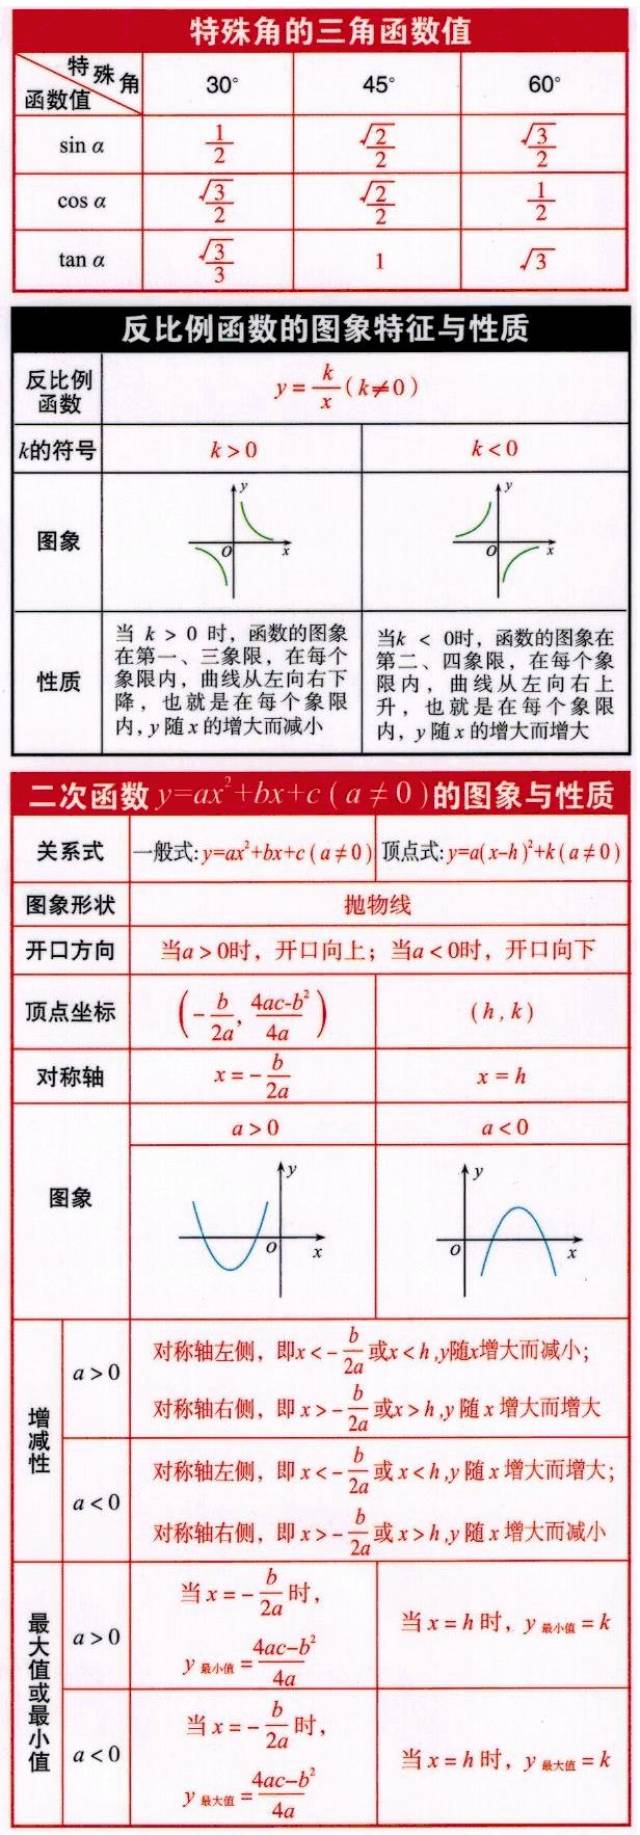 特殊角的三角函数值
特殊角
函数值
30° 45° 60°
sin α 1/2 √2/2 √3/2
cos α √3/2 √2/2 1/2
tan α √3/3 1 √3
反比例函数的图象特征与性质
反比例
函数
y=k/x(k≠0)
k的符号 k>0 k<0
图象
y
O
x
y
O
x
性质
当 k > 0 时，函数的图象
在第一、三象限，在每个
象限内，曲线从左向右下
降，也就是在每个象限
内，y 随 x 的增大而减小
当k < 0时，函数的图象在
第二、四象限，在每个象
限内，曲线从左向右上
升，也就是在每个象限
内，y 随 x 的增大而增大
二次函数 y=ax²+bx+c ( a ≠ 0 )的图象与性质
关系式 一般式:y=ax²+bx+c ( a ≠ 0 ) 顶点式:y=a(x-h)²+k ( a ≠ 0 )
图象形状 抛物线
开口方向 当a > 0时，开口向上；当a < 0时，开口向下
顶点坐标 (-b/2a, 4ac-b²/4a) (h , k)
对称轴 x=-b/2a x = h
图象
a > 0 a < 0
y
O
x
y
O
x
增减性
a > 0
对称轴左侧，即x<-b/2a或x< h ,y随x增大而减小；
对称轴右侧，即 x>-b/2a或x> h ,y 随 x 增大而增大
a < 0
对称轴左侧，即 x<-b/2a或 x< h ,y 随 x 增大而增大；
对称轴右侧，即 x>-b/2a或 x> h ,y 随 x 增大而减小
最大值或最小值
a > 0
当 x=-b/2a时，
y 最小值=4ac-b²/4a
当 x = h 时，y 最小值 = k
a < 0
当 x=-b/2a时，
y 最大值=4ac-b²/4a
当 x = h 时，y 最大值 = k